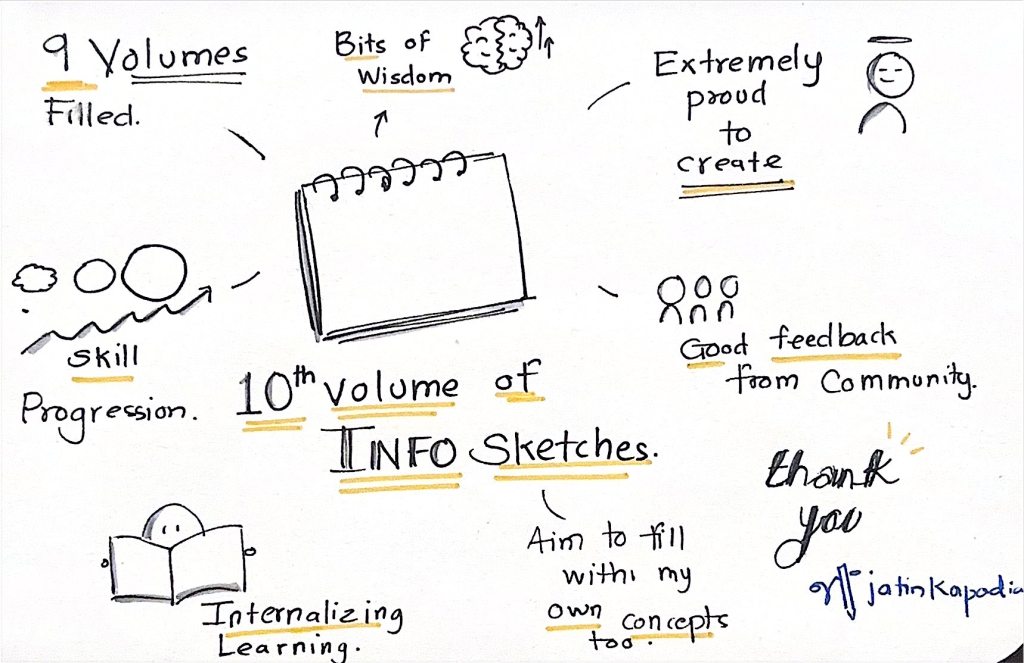 9 Volumes
Filled.
Bits of
Wisdom
Extremely
proud
to
create
Skill
Progression.
Good feedback
from Community.
10th volume of
INFO Sketches.
Internalizing
Learning.
Aim to fill
with my
own concepts
too.
thank
you
jatinkapadia